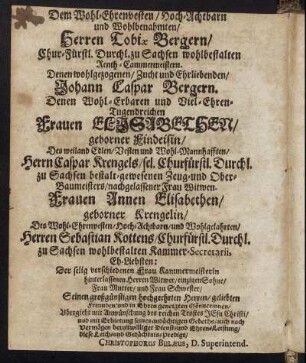 Dem Wohl-Ehrenvesten/ Hoch-Achtbarn
und Wohlbenahmten/
Herren Tobiæ Bergern/
Chur-Fürstl. Durchl. zu Sachsen wohlbestalten
Renth-Cammermeistern.
Denen wohlgezogenen/ Zucht und Ehrliebenden/
Johann Caspar Bergern.
Denen Wohl-Erbaren und Viel-Ehren-
Tugendreichen
Frauen ELISABETHEN/
geborner Findeisin/
Des weiland Edlen/ Vesten und Wohl-Mannhafften/
Herrn Caspar Krengels/ sel. Churfürstl. Durchl.
zu Sachsen bestalt-gewesenen Zeug-und Ober-
Baumeisters/ nachgelassener Frau Witwen.
Frauen Annen Elisabethen/
geborner Krengelin/
Des Wohl-Ehrenvesten/ Hoch-Achtbarn/ und Wohlgelahrten/
Herren Sebastian Kottens/ Churfürstl. Durchl.
zu Sachsen wohlbestalten Kammer-Secretarii,
Eh-Liebsten:
Der selig verschiedenen Frau Kammermeisterin
hinterlassenen Herrn Witwer/ einzigen Sohne/
Frau Mutter/ und Frau Schwester;
Seinen großgünstigen hochgeehrten Herren/ geliebten
Freunden/ und in Ehren
Übergiebt mit Anwünschung des reichen Trostes JEsu Christi/
und mit Erbietung seines andächtigen Gebets/ auch nach
Vermögen bereitwilliger Dienst und Ehren-Leistung/
diese Leich-und Gedächtnüs-Predigt/
CHRISTOPHORUS BULÆUS, D. Superintend.